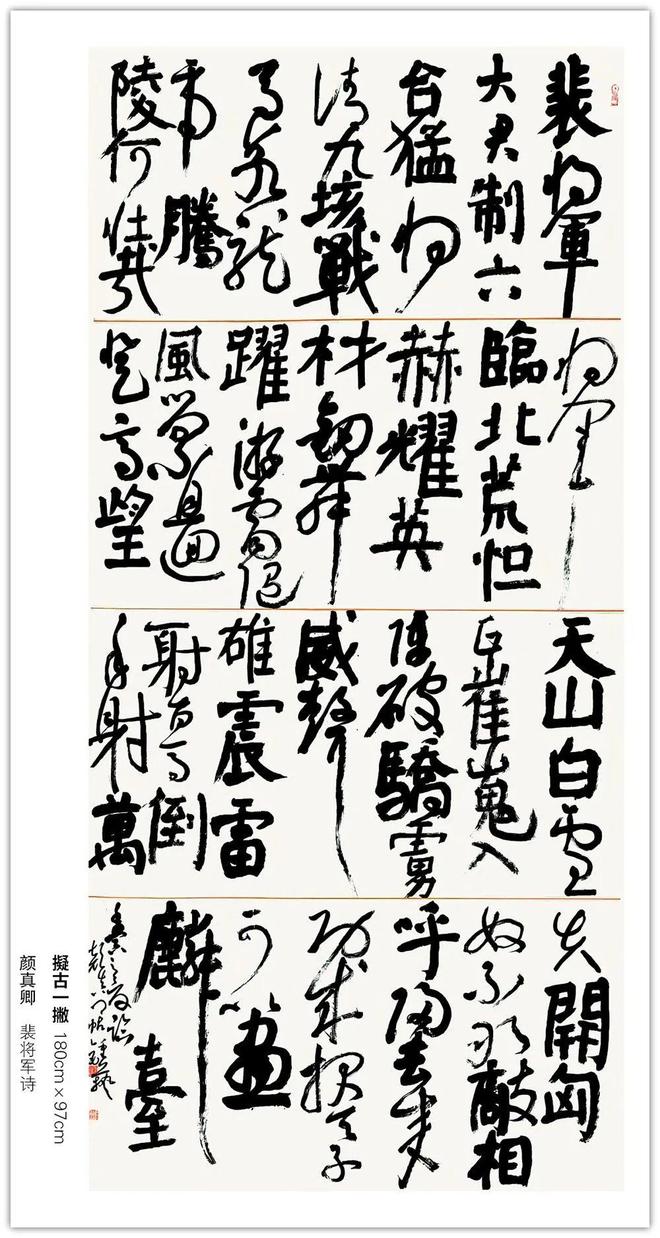 裴将軍
大君制六
合猛将
清九垓戰
馬若龍
虎騰
陵何壮哉
将軍
臨北荒烜
赫耀英
材劍舞
躍游電随
風縈且迴
登高望
天山白雪
正崔嵬入
陣破驕虜
威聲
雄震雷
射百馬倒
再射萬
夫開匈
奴不敢敵相
呼歸去来
功成报天子
可以畫
麟臺
擬古一撇 180cm×97cm
颜真卿 裴将军诗